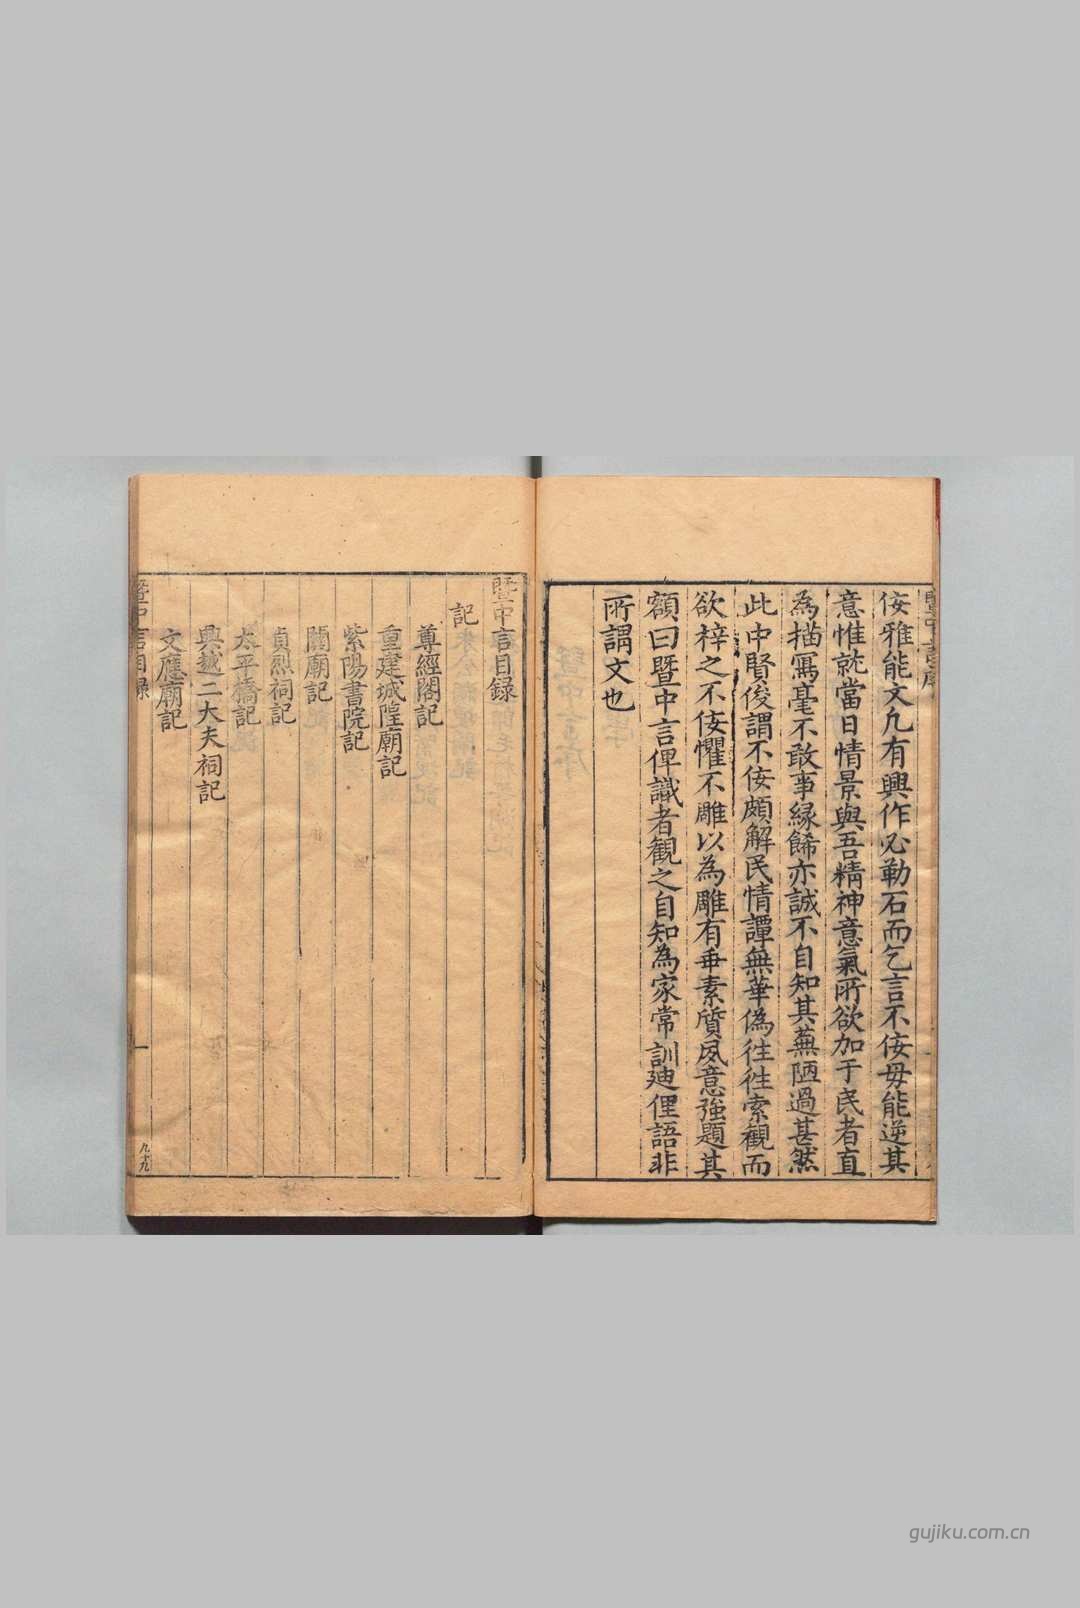 佞雅能文凢有興作必勒石而乞言不佞毋能逆其
意惟就當日情景與吾精神意氣所欲加于民者直
為描寫毫不敢事緣餙亦誠不自知其蕪陋過甚然
此中賢俊謂不佞頗解民情譚無華偽往往索觀而
欲梓之不佞懼不雕以為雕有乖素質夙意強題其
額曰暨中言俾識者観之自知為家常訓廸俚語非
所謂文也
暨中言目録
記
尊經閣記
重建城隍廟記
紫陽書院記
關廟記
貞烈祠記
太平橋記
興越二大夫祠記
文應廟記
暨中言目録
一
九十九
gujiku.com.cn